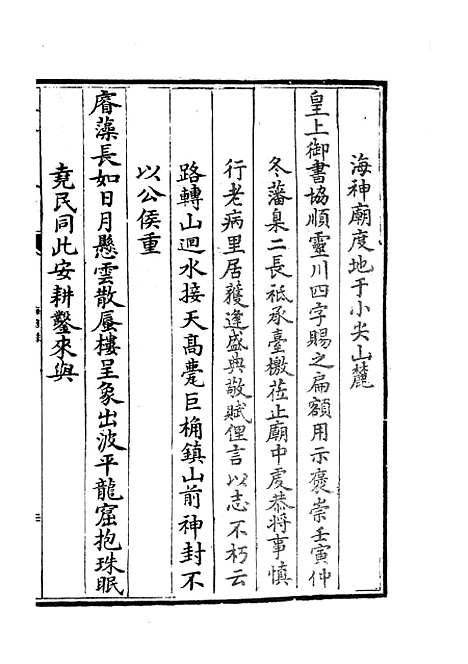 海神廟度地于小尖山麓
皇上御書協順靈川四字賜之扁額用示褒崇壬寅仲
冬藩臬二長祗承臺檄蒞止廟中虔恭將事慎
行老病里居獲逢盛典敬賦俚言以志不朽云
路轉山迴水接天高甍巨桷鎮山前神封不
以公侯重
睿藻長如日月懸雲散蜃樓呈象出波平龍窟抱珠眠
堯民同此安耕鑿來與